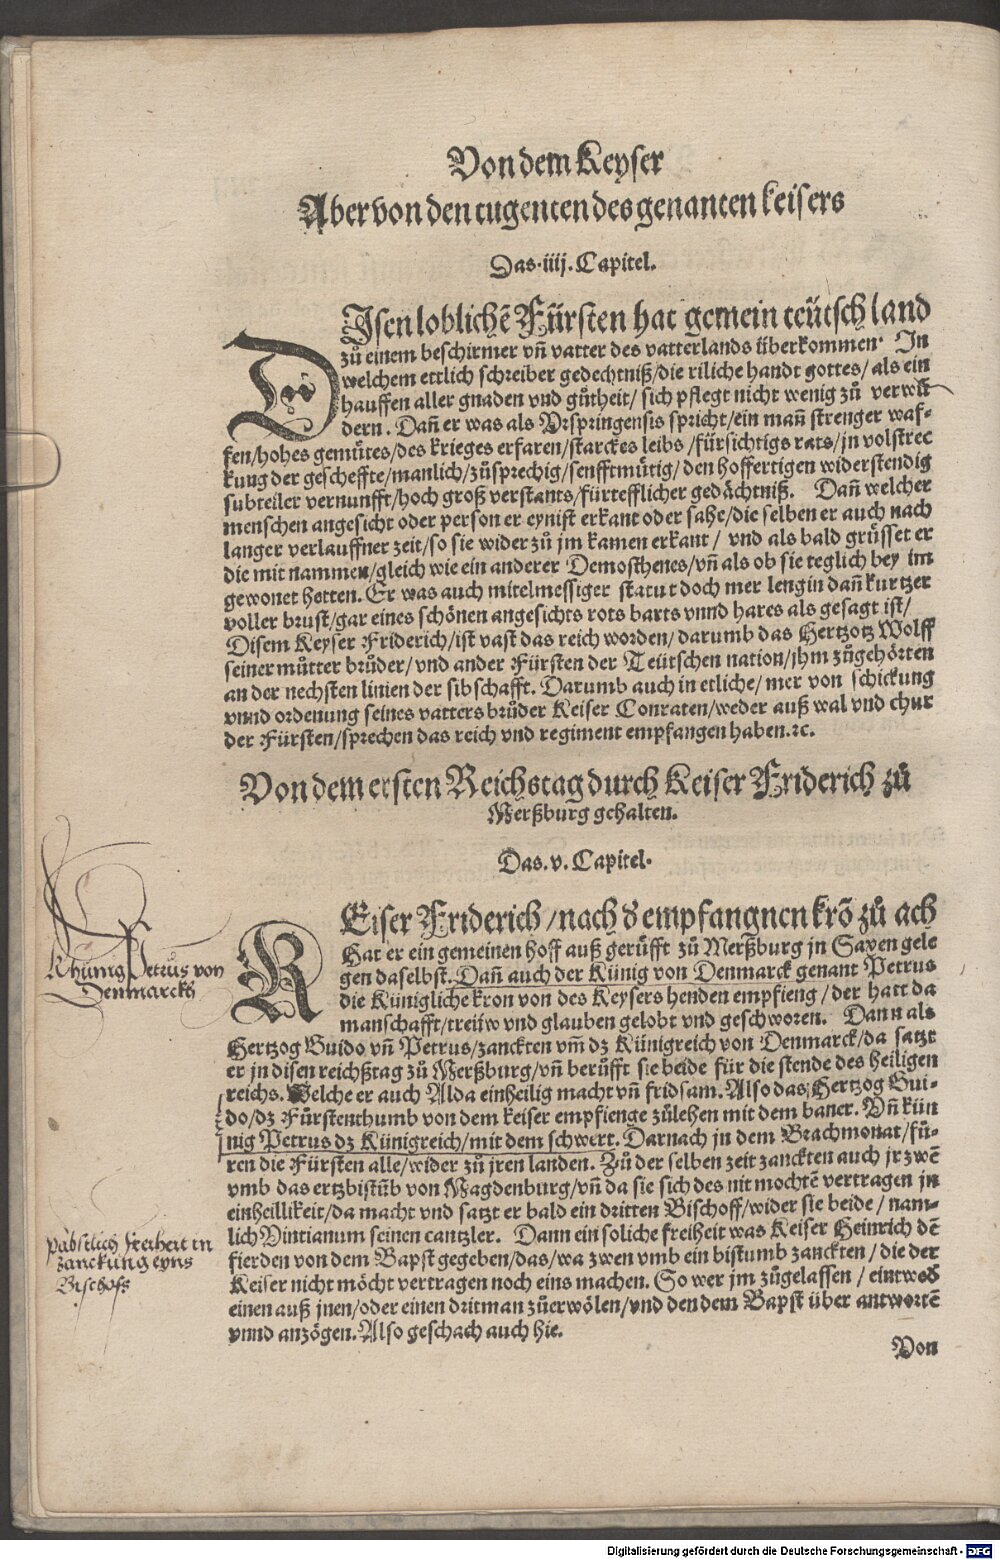 Von dem Keyser
Aber von den tugenten des genanten keisers
Das.iiij.Capitel.
DIsen loblichē Fürsten hat gemein teütsch land
zů einem beschirmer vñ vatter des vatterlands überkommen. In
welchem ettlich schreiber gedechtniß/die riliche handt gottes/als ein
hauffen aller gnaden vnd gůtheit/sich pflegt nicht wenig zů verwū
dern. Dañ er was als Vrspringensis spricht/ein mañ strenger waf-
fen/hohes gemütes/des krieges erfaren/starckes leibs/fürsichtigs rats/jn volstrec
kung der gescheffte/manlich/zůsprechig/senfftmütig/den hoffertigen widerstendig
subteiler vernunfft/hoch groß verstants/fürtefflicher gedächtniß. Dañ welcher
menschen angesicht oder person er eynist erkant oder sahe/die selben er auch nach
langer verlauffner zeit/so sie wider zů jm kamen erkant/ vnd als bald grüsset er
die mit nammen/gleich wie ein anderer Demosthenes/vñ als ob sie teglich bey im
gewonet hetten. Er was auch mitelmessiger statut doch mer lengin dañ kurtzer
voller brust/gar eines schönen angesichts rots barts vnnd hares als gesagt ist/
Disem Keyser Friderich/ist vast das reich worden/darumb das Hertzotz Wolff
seiner můtter brůder/vnd ander Fürsten der Teütschen nation/jhm zůgehörten
an der nechsten linien der sibschafft. Darumb auch in etliche/mer von schickung
vnnd ordenung seines vatters brůder Keiser Conraten/weder auß wal vnd chur
der Fürsten/sprechen das reich vnd regiment empfangen haben.ꝛc.
Von dem ersten Reichstag durch Keiser Friderich zů
Merßburg gehalten.
Das.v.Capitel.
KEiser Friderich/nach d̕ empfangnen krō zů ach
Hat er ein gemeinen hoff auß gerüfft zů Merßburg jn Saxen gele
gen daselbst. Dañ auch der Künig von Denmarck genant Petrus
die Künigliche kron von des Keysers henden empfieng/der hatt da
manschafft/treüw vnd glauben gelobt vnd geschworen. Dann als
Hertzog Guido vñ Petrus/zanckten vm̄ dz Künigreich von Denmarck/da satzt
er jn disen reichßtag zů Merßburg/vñ berüfft sie beide für die stende des heiligen
reichs. Welche er auch Alda einheilig macht vñ fridsam. Also das Hertzog Gui-
do/dz Fürstenthumb von dem keiser empfienge zůlehen mit dem baner. Vñ kün
nig Petrus dz Künigreich/mit dem schwert. Darnach jn dem Brachmonat/fü-
ren die Fürsten alle/wider zů jren landen. Zů der selben zeit zanckten auch jr zwē
vmb das ertzbistūb von Magdenburg/vñ da sie sich des nit mochtē vertragen jn
einhellikeit/da macht vnd satzt er bald ein dritten Bischoff/wider sie beide/nam-
lich Vintianum seinen cantzler. Dann ein soliche freiheit was Keiser Heinrich dē
fierden von dem Bapst gegeben/das/wa zwen vmb ein bistumb zanckten/die der
Keiser nicht möcht vertragen noch eins machen. So wer jm zůgelassen/eintwed̕
einen auß jnen/oder einen dritman zůerwölen/vnd den dem Bapst über antwortē
vnnd anzögen. Also geschach auch hie.
Von
Khünig Petrus von
Denmarckh
Päbstlich freiheit in
zanckung eyns
Bischofs
Digitalisierung gefördert durch die Deutsche Forschungsgemeinschaft - DFG